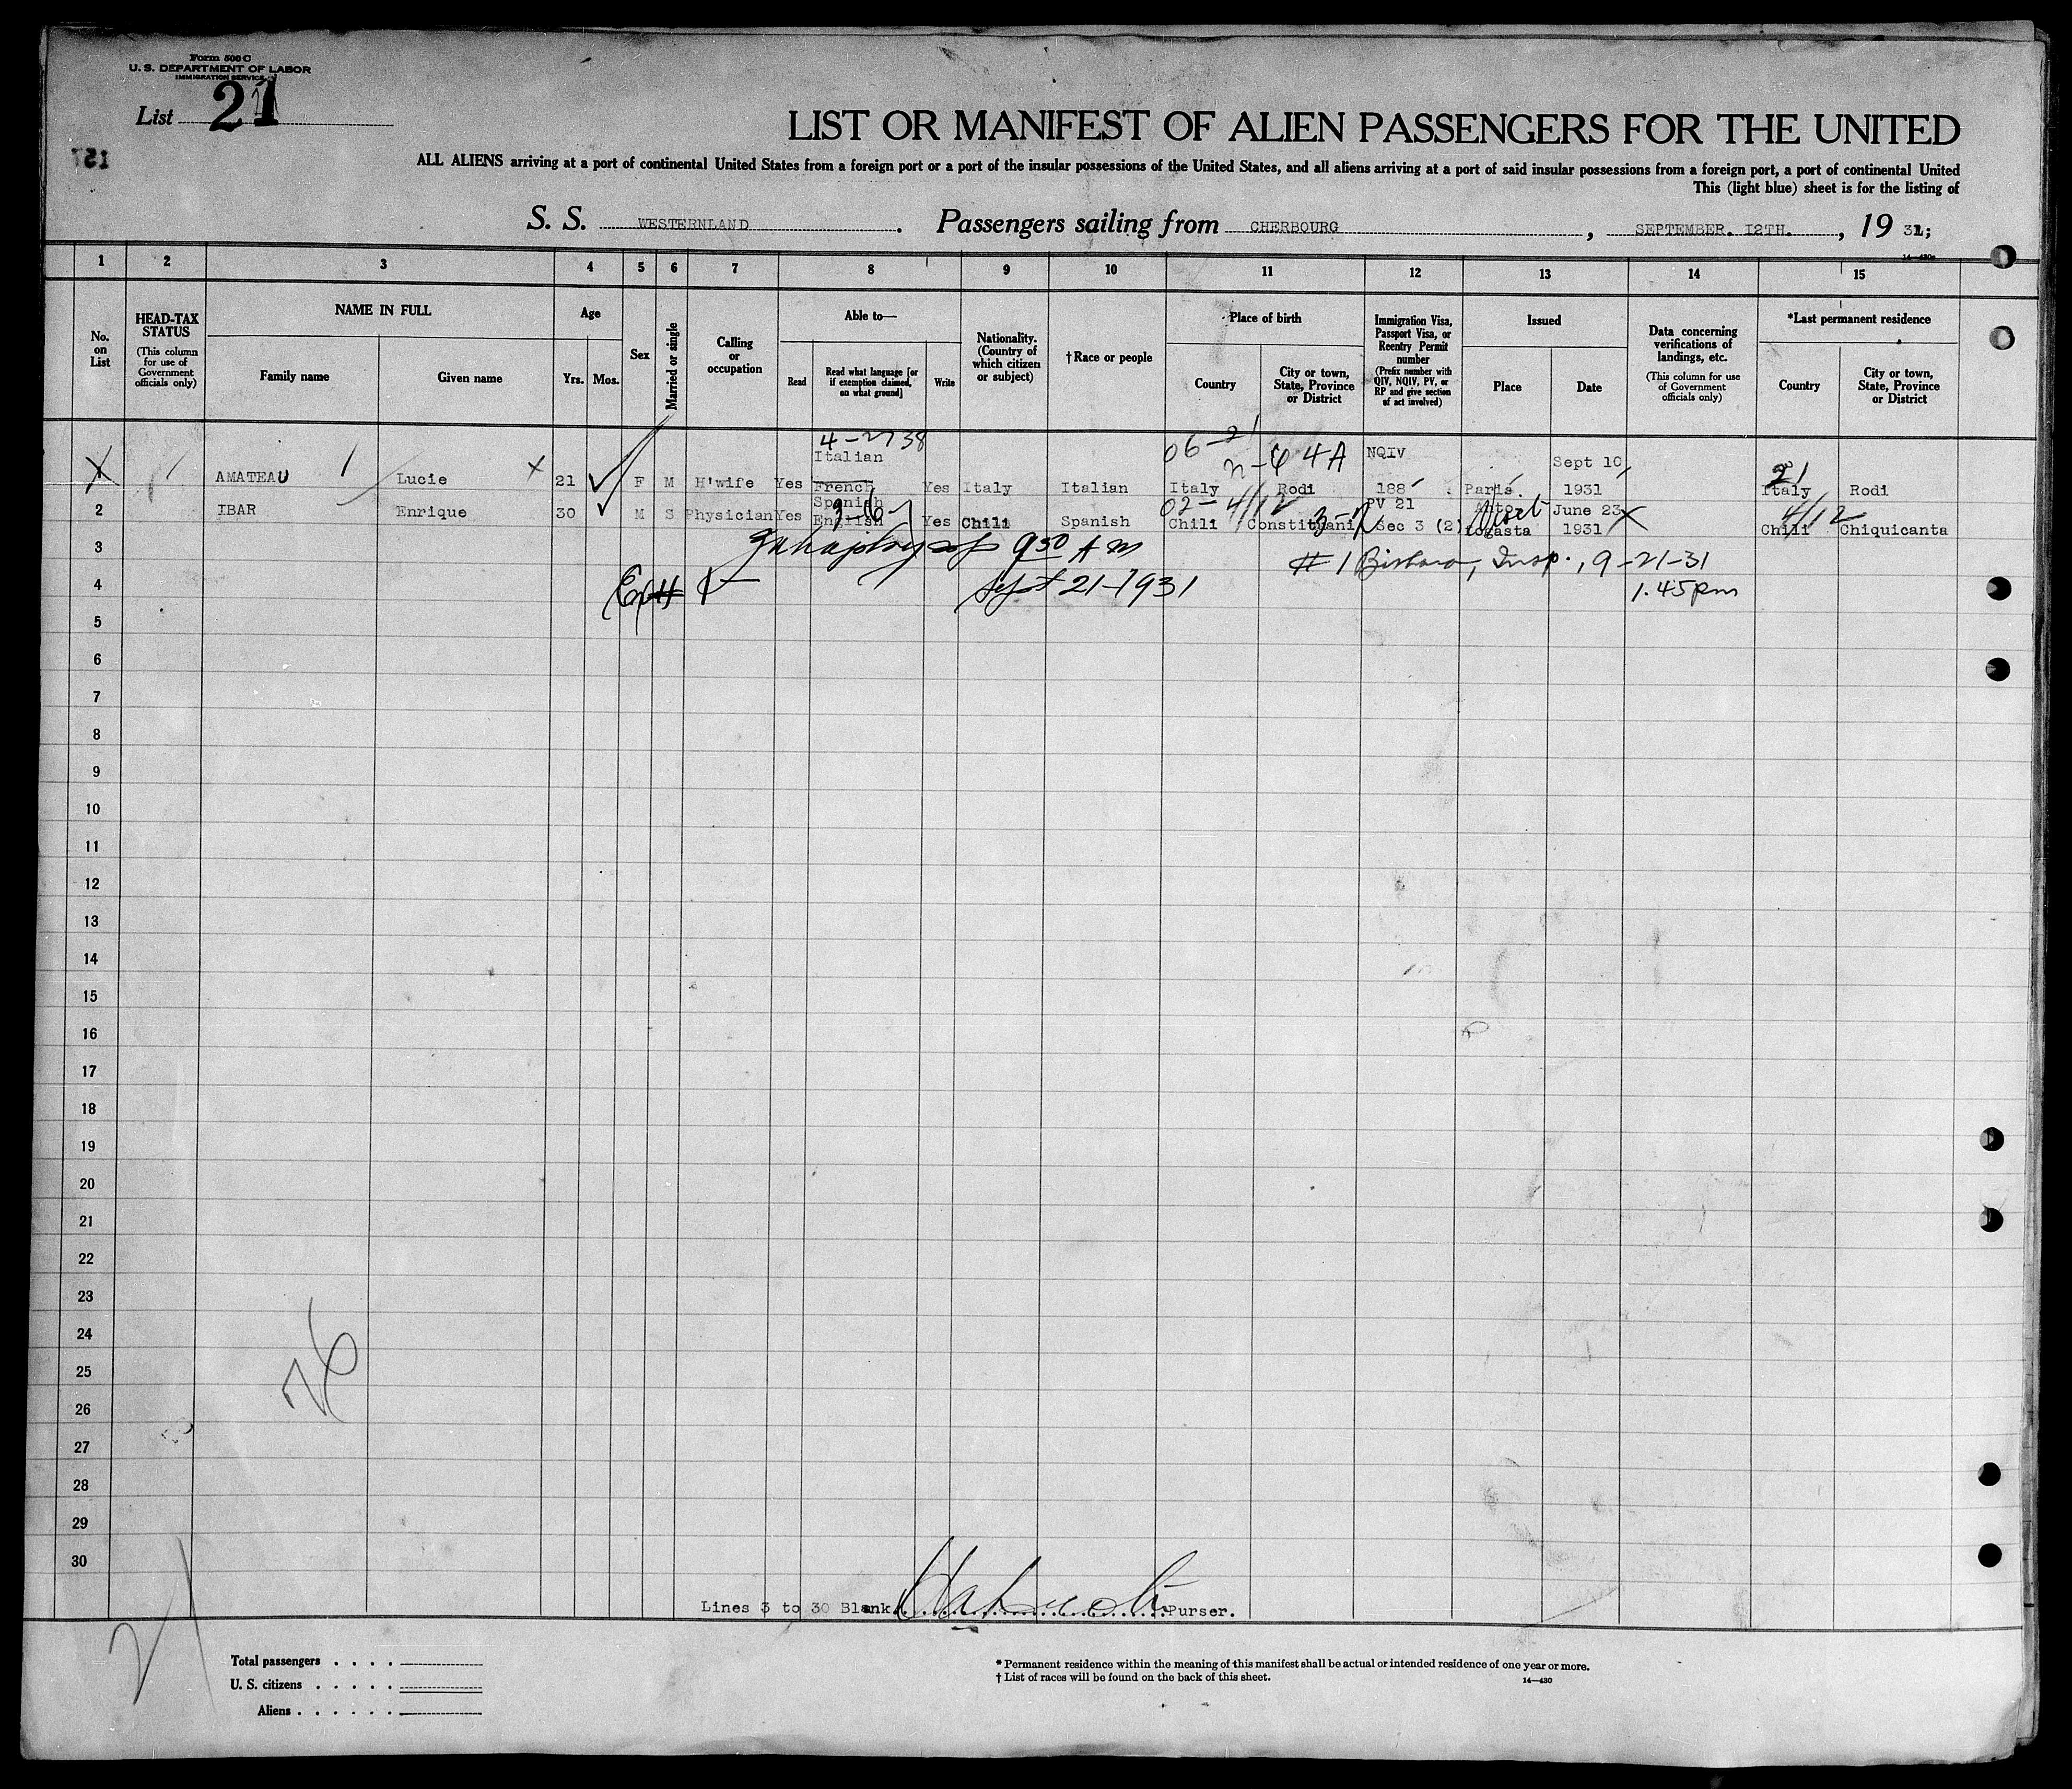 Form 500 C
U. S. DEPARTMENT OF LABOR
IMMIGRATION SERVICE
List 21
157
LIST OR MANIFEST OF ALIEN PASSENGERS FOR THE UNITED
ALL ALIENS arriving at a port of continental United States from a foreign port or a port of the insular possessions of the United States, and all aliens arriving at a port of said insular possessions from a foreign port, a port of continental United
This (light blue) sheet is for the listing of
S. S. WESTERNLAND . Passengers sailing from CHERBOURG , SEPTEMBER. 12TH. , 19 31;
14—430a
1 2 3 4 5 6 7 8 9 10 11 12 13 14 15
No. on List
HEAD-TAX STATUS (This column for use of Government officials only)
NAME IN FULL
Family name Given name
Age
Yrs. Mos.
Sex
Married or single
Calling or occupation
Able to—
Read Read what language [or if exemption claimed, on what ground] Write
Nationality. (Country of which citizen or subject)
†Race or people
Place of birth
Country City or town, State, Province or District
Immigration Visa, Passport Visa, or Reentry Permit number (Prefix number with QIV, NQIV, PV, or RP and give section of act involved)
Issued
Place Date
Data concerning verifications of landings, etc. (This column for use of Government officials only)
*Last permanent residence
Country City or town, State, Province or District
4-2738 06-21 4A NQIV
Italian Sept 10, 21
1 AMATEAU 1 Lucie X 21 F M H'wife Yes French Yes Italy Italian Italy Rodi 188 Paris. 1931 Italy Rodi
Spanish 02-4/12 PV 21 Anto June 23 4/12
2 IBAR Enrique 30 M S Physician Yes English Yes Chili Spanish Chili Constituani Sec 3 (2) fogasta 1931 Chili Chiquicanta
3 9 50 A M # 1 Insp., 9-21-31
4 Sept 21-1931 1.45 pm
5
6
7
8
9
10
11
12
13
14
15
16
17
18
19
20
21
22
23
24
25
26
27
28
29
30
76
Lines 3 to 30 Blank. Purser.
21
Total passengers . . . .
U. S. citizens . . . . .
Aliens . . . . . .
* Permanent residence within the meaning of this manifest shall be actual or intended residence of one year or more.
† List of races will be found on the back of this sheet.
14—430